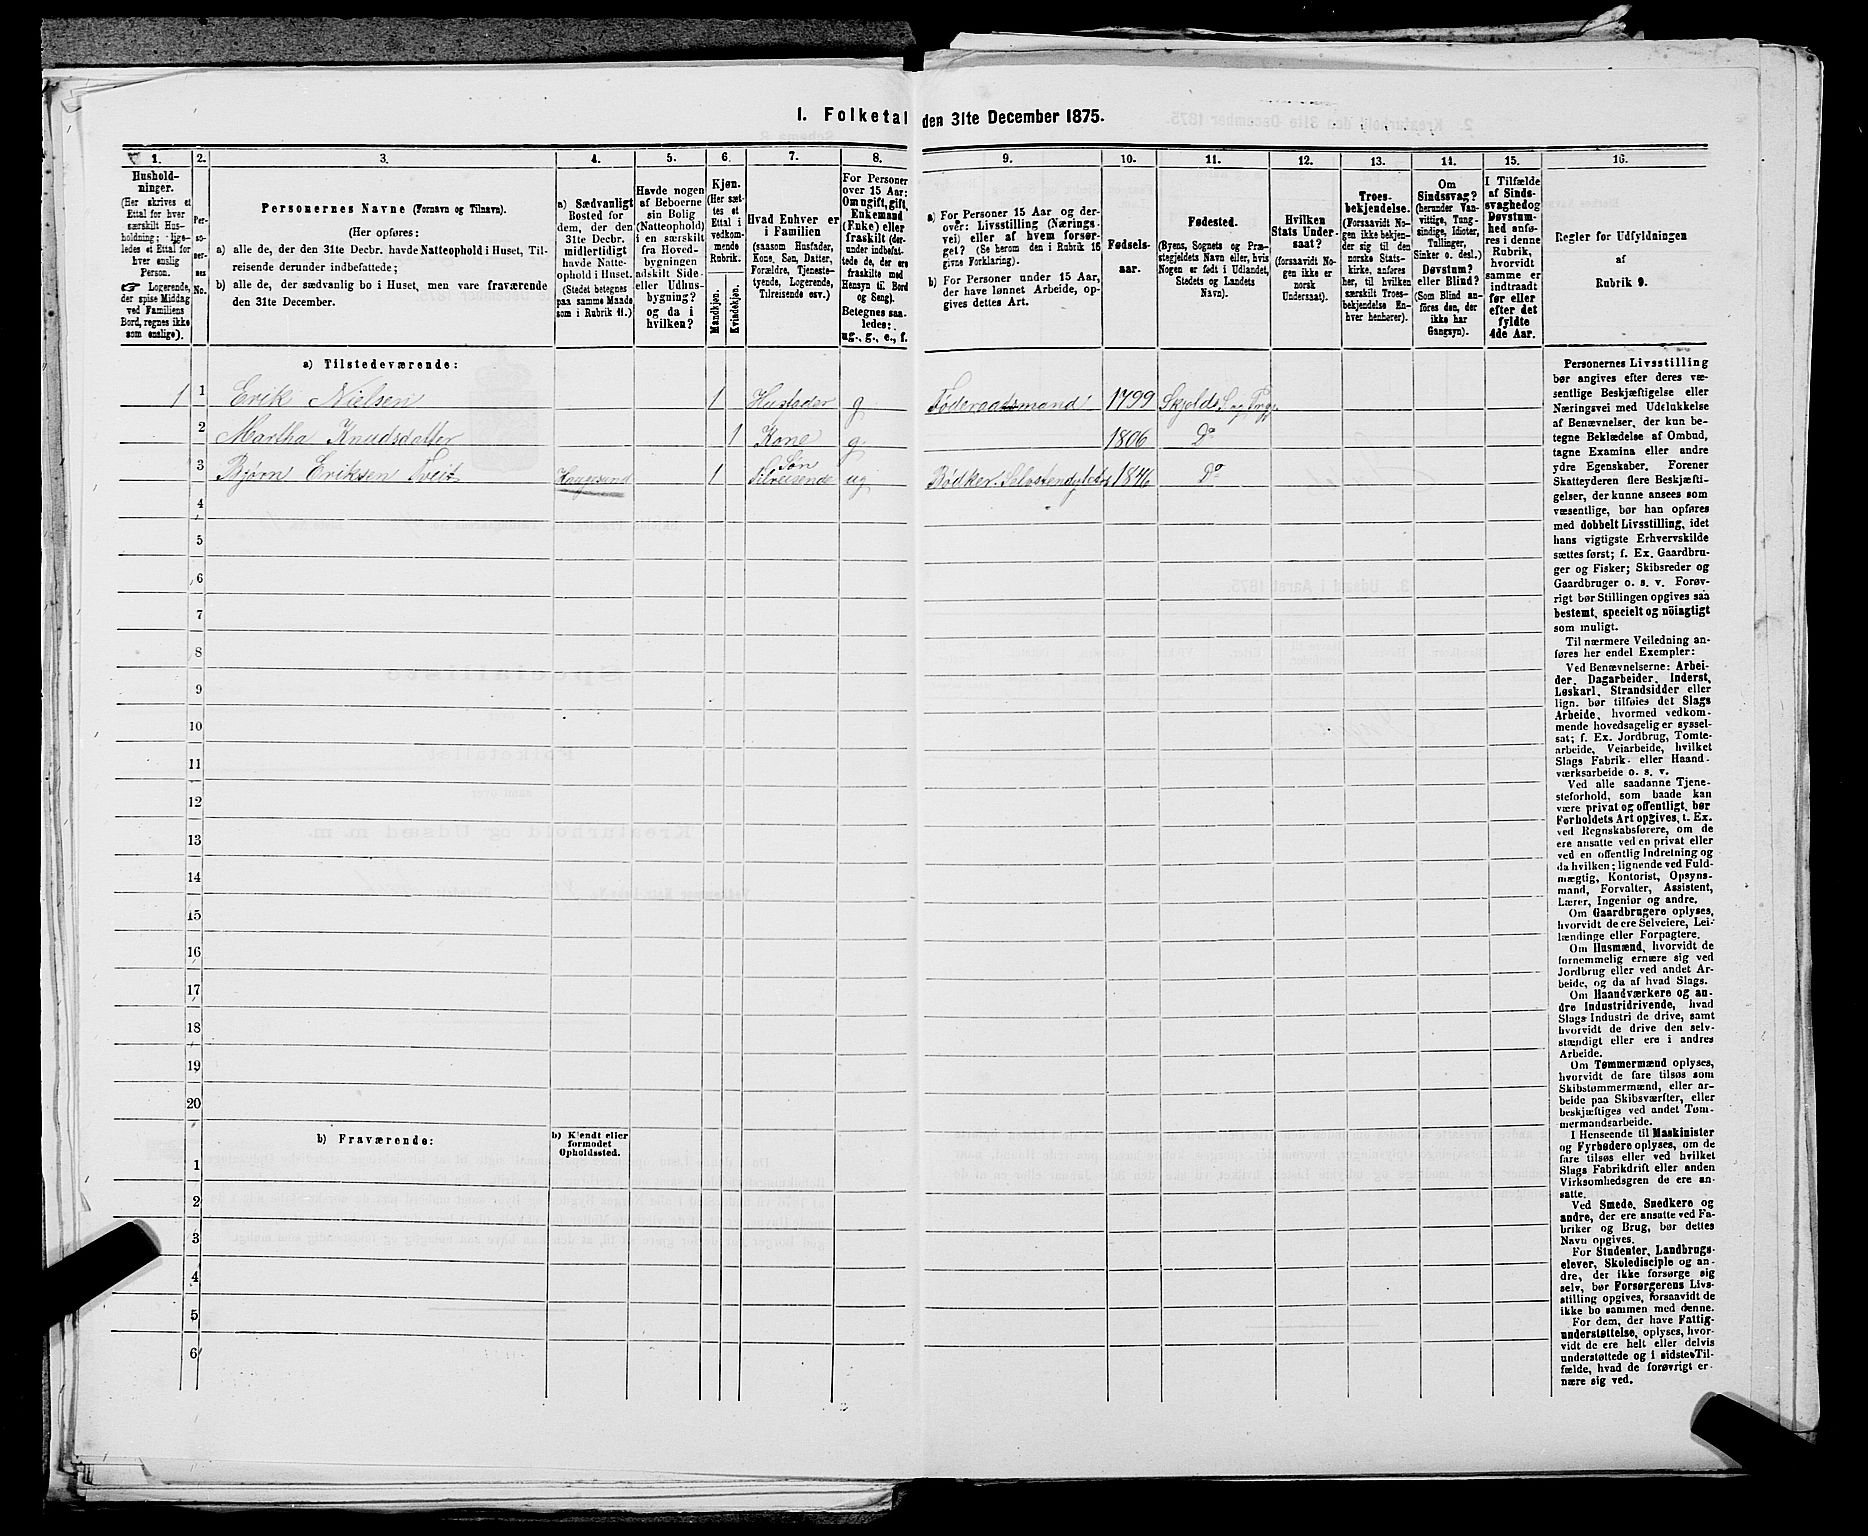 I. Folketal den 31te December 1875.
1.
2.
3.
4.
5.
6.
7.
8.
9.
10.
11.
12.
13.
14.
15.
16.
Hushold-
ninger.
(Her skrives et
Ettal for hver
særskilt Hus-
holdning; lige-
ledes et Ettal for
hver enslig
Person.
Logerende,
der spise Middag
ved Familiens
Bord, regnes ikke
som enslige).
Per-
so-
ner-
nes
No.
Personernes Navne (Fornavn og Tilnavn).
(Her opføres:
a) alle de, der den 31te Decbr. havde Natteophold i Huset, Til-
reisende derunder indbefattede;
b) alle de, der sædvanlig bo i Huset, men vare fraværende
den 31te December.
a) Sædvanligt
Bosted for
dem, der den
31te Decbr.
midlertidigt
havde Natte-
ophold i Huset.
(Stedet betegnes
paa samme Maade
som i Rubrik 11.)
Havde nogen
af Beboerne
sin Bolig
(Natteophold)
i en særskilt
fra Hoved-
bygningen
adskilt Side-
eller Udhus-
bygning?
og da i
hvilken?
Kjøn.
(Her sæt-
tes et
Ettal i
vedkom-
mende
Rubrik.
Mandkjøn.
Kvindekjøn.
Hvad Enhver er
i Familien
(saasom Husfader,
Kone, Søn, Datter,
Forældre, Tjeneste-
tyende, Logerende,
Tilreisende osv.)
For Personer
over 15 Aar:
Om ugift, gift,
Enkemand
(Enke) eller
fraskilt (der-
under indbefat-
tede de, der ere
fraskilte med
Hensyn til Bord
og Seng).
Betegnes saa-
ledes:
ug., g., e., f.
a) For Personer 15 Aar og der-
over: Livsstilling (Nærings-
vei) eller af hvem forsør-
get? (Se herom den i Rubrik 16
givne Forklaring).
b) For Personer under 15 Aar,
der have lønnet Arbeide, op-
gives dettes Art.
Fødsels-
aar.
Fødested.
(Byens, Sognets og Præ-
stegjeldets Navn eller, hvis
Nogen er født i Udlandet,
Stedets og Landets
Navn).
Hvilken
Stats Under-
saat?
(forsaavidt No-
gen ikke er
norsk
Undersaat).
Troes-
bekjendelse.
(Forsaavidt No-
gen ikke bekjen-
der sig til den
norske Stats-
kirke, anføres
her, til hvilken
særskilt Troes-
bekjendelse En-
hver henhører).
Om
Sindssvag?
(herunder Van-
vittige, Tung-
sindige, Idioter,
Tullinger,
Sinker o. desl.)
Døvstum?
eller Blind?
(Som Blind an-
føres den, der
ikke har
Gangsyn).
I Tilfælde
af Sinds-
svaghed og
Døvstum-
hed anfø-
res i denne
Rubrik,
hvorvidt
samme er
indtraadt
før eller
efter det
fyldte
4de Aar.
Regler for Udfyldningen
af
Rubrik 9.
a) Tilstedeværende:
1 1 Erik Nielsen 1 Husfader g Föderaadsmand 1799 Skjolds S. og Prgj.
2 Martha Knudsdatter 1 Kone g 1806 Do
3 Bjørn Eriksen Tveit Haugesund 1 Søn Tilreisende ug Bödker. 1846 Do
4
5
6
7
8
9
10
11
12
13
14
15
16
17
18
19
20
b) Fraværende:
b) Kjendt eller
formodet
Opholdssted.
1
2
3
4
5
6
Personernes Livsstilling
bør angives efter deres væ-
sentlige Beskjæftigelse eller
Næringsvei med Udelukkelse
af Benævnelser, der kun be-
tegne Beklædelse af Ombud,
tagne Examina eller andre
ydre Egenskaber. Forener
Skatteyderen flere Beskjæfti-
gelser, der kunne ansees som
væsentlige, bør han opføres
med dobbelt Livsstilling, idet
hans vigtigste Erhvervskilde
sættes først; f. Ex. Gaardbru-
ger og Fisker; Skibsreder og
Gaardbruger o. s. v. Forøv-
rigt bør Stillingen opgives saa
bestemt, specielt og nöiagtigt
som muligt.
Til nærmere Veiledning an-
føres her endel Exempler:
Ved Benævnelserne: Arbei-
der, Dagarbeider, Inderst,
Løskarl, Strandsidder eller
lign. bør tilføies det Slags
Arbeide, hvormed vedkom-
mende hovedsagelig er syssel-
sat; f. Ex. Jordbrug, Tomte-
arbeide, Veiarbeide, hvilket
Slags Fabrik- eller Haand-
værksarbeide o. s. v.
Ved alle saadanne Tjene-
steforhold, som baade kan
være privat og offentligt, bør
Forholdets Art opgives, t. Ex.
ved Regnskabsførere, om de
ere ansatte ved en privat eller
ved en offentlig Indretning og
da hvilken; lignende ved Fuld-
mægtig, Kontorist, Opsyns-
mand, Forvalter, Assistent,
Lærer, Ingeniør og andre.
Om Gaardbrugere oplyses,
hvorvidt de ere Selveiere, Lei-
lændinge eller Forpagtere.
Om Husmænd, hvorvidt de
fornemmelig ernære sig ved
Jordbrug eller ved andet Ar-
beide, og da af hvad Slags.
Om Haandværkere og an-
dre Industridrivende, hvad
Slags Industri de drive, samt
hvorvidt de drive den selv-
stændigt eller ere i andres
Arbeide.
Om Tømmermænd oplyses,
hvorvidt de fare tilsøs som
Skibstømmermænd, eller ar-
beide paa Skibsværfter, eller
beskjæftiges ved andet Tøm-
mermandsarbeide.
I Henseende til Maskinister
og Fyrbødere oplyses, om de
fare tilsøs eller ved hvilket
Slags Fabrikdrift eller anden
Virksomhedsgren de ere an-
satte.
Ved Smede, Snedkere og
andre, der ere ansatte ved Fa-
briker og Brug, bør dettes
Navn opgives.
For Studenter, Landbrugs-
elever, Skoledisciple og an-
dre, der ikke forsørge sig
selv, bør Forsørgerens Livs-
stilling opgives, forsaavidt de
ikke bo sammen med denne.
For dem, der have Fattig-
understøttelse, oplyses, hvor-
vidt de ere helt eller delvis
understøttede og i sidste Til-
fælde, hvad de forøvrigt er-
nære sig ved.